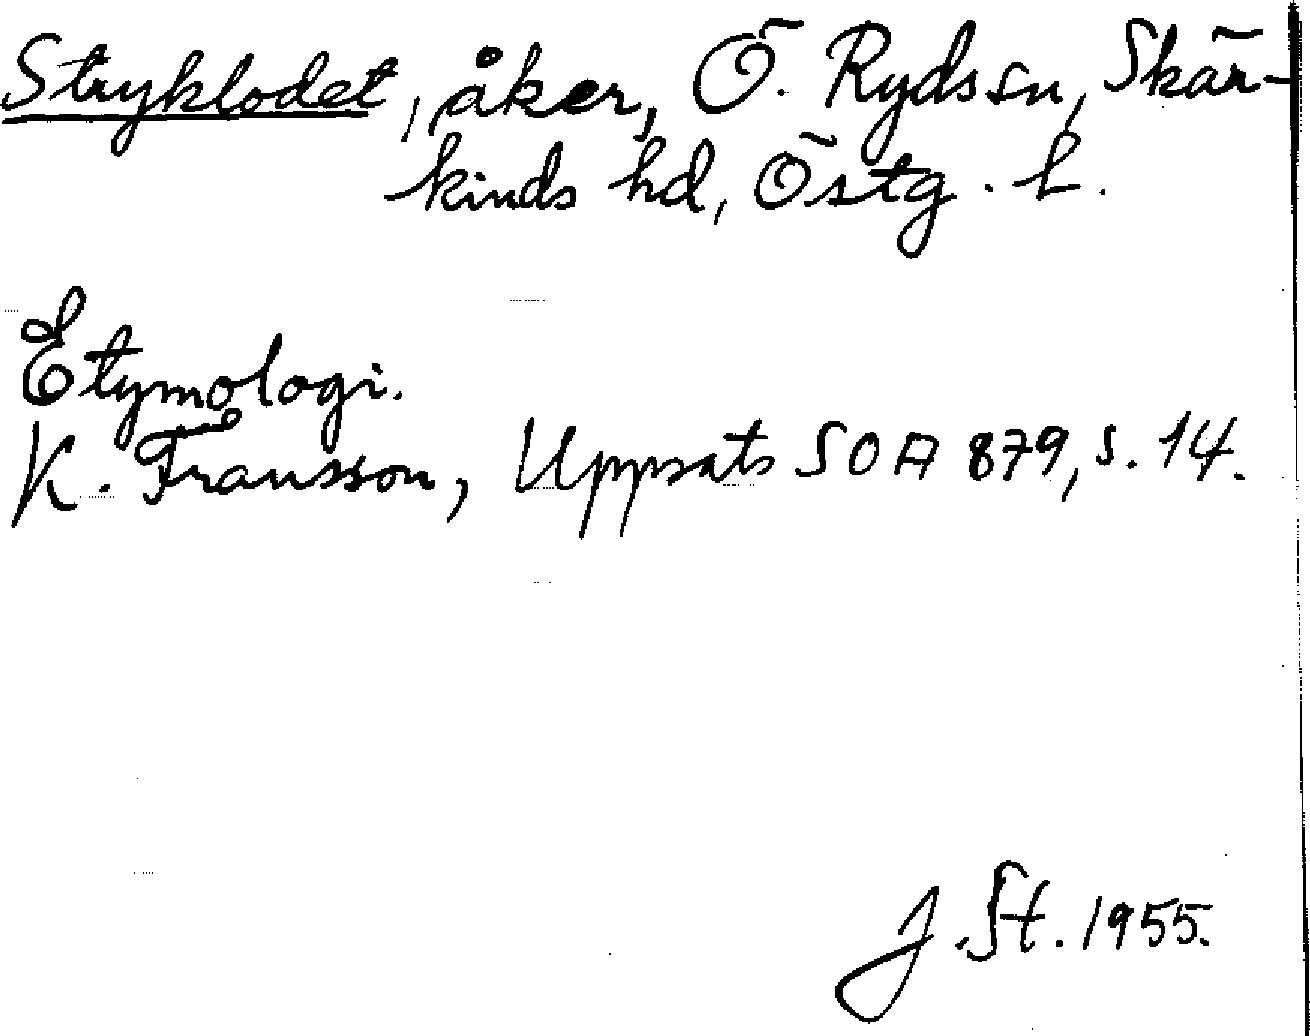 Stryklodet, åker, Ö. Ryds sn, Skär-
kinds hd, Östg. l.
Etymologi.
K. Fransson, Uppsats SOA 879, s. 14.
J. St. 1955.